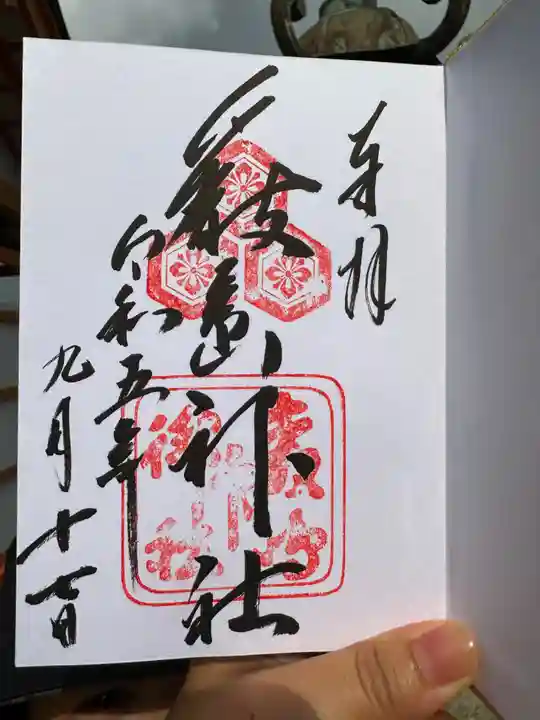 奉拝
厳島神社
令和五年
九月十七日